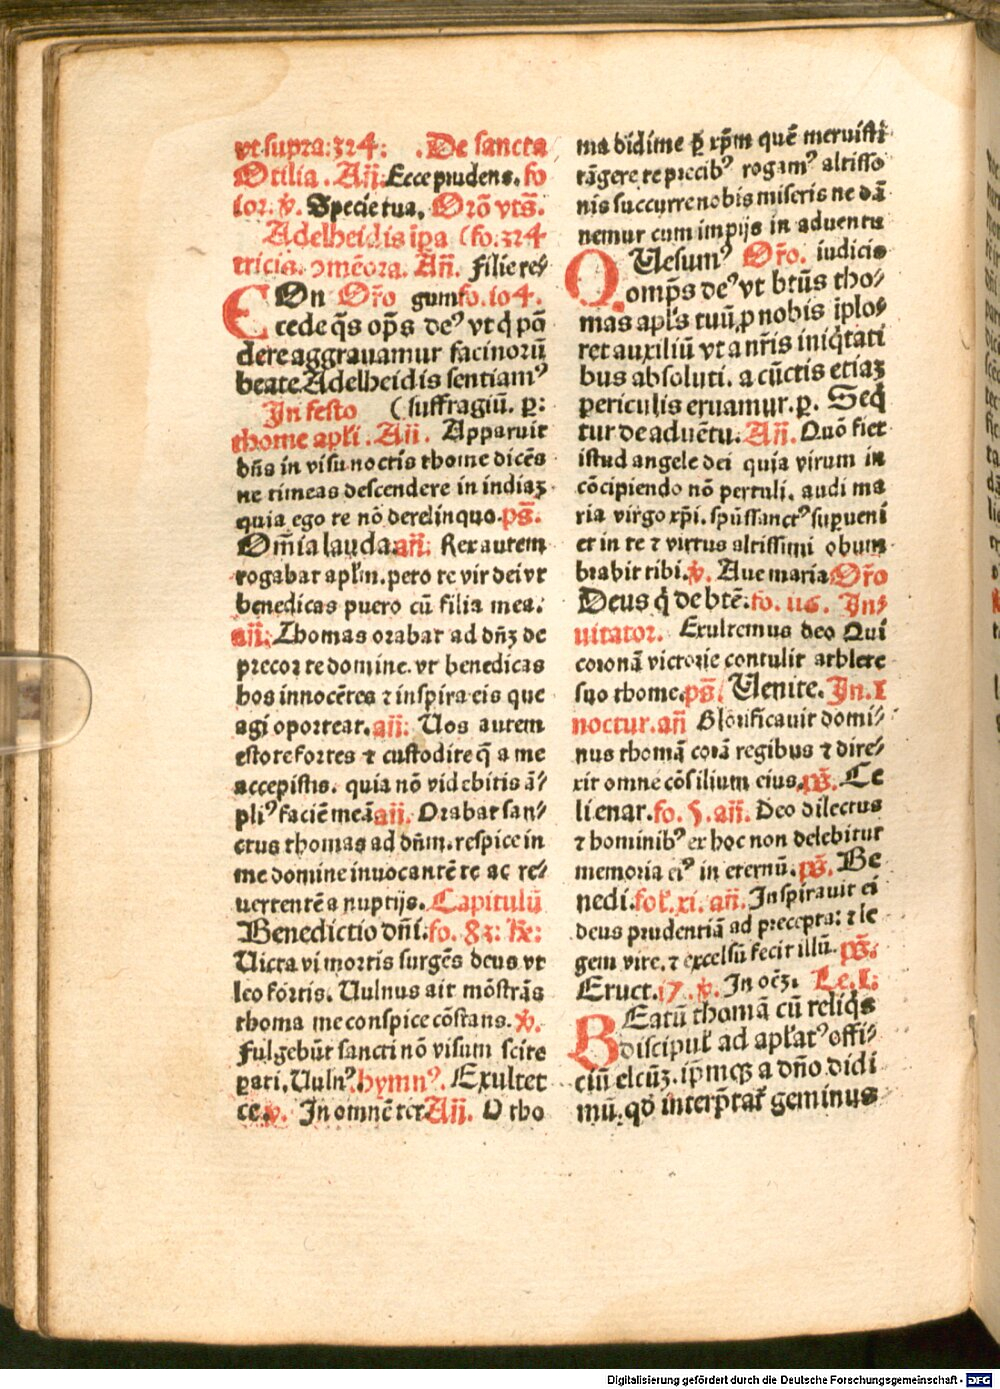 vt supra: 324: . De sancta
Otilia . Añ: Ecce prudens. fo
ior. v̕. Specie tua. Orõ vts̃.
Adelheidis ip̃a (fo. 324
tricis. ɔmẽora. Añ. filie re⸗
EOn Or̃o gum fo. 104.
cede q̃s op̃s deꝰ vt q̇ põ
dere aggrauamur facinorũ
beate Adelheidis sentiamꝰ
In festo (suffragiũ. ꝑ:
thome apl̃i . Añ. Apparuit
dñs in visu noctis thome dicẽs
ne timeas descendere in indiaꝫ
quia ego te nõ derelinquo. ps̃.
Om̃ia lauda. añ: Rex autem
rogabat apl̃m. pero te vir dei vt
benedicas puero cũ filia mea.
añ: Thomas orabat ad dñꝫ de
precor te domine. vt benedicas
hos innocẽtes ⁊ inspira eis que
agi oportear. añ: Uos autem
estote fortes ⁊ custodire q̃ a me
accepistis. quia nõ videbitis ã⸗
pliꝰ faciẽ meã añ. Orabat san⸗
ctus thomas ad dñm. respice in
me domine inuocantẽ te ac re⸗
uertentẽ a nuptijs. Capitulũ
Benedictio dñi: fo. 83: Rꝶ:
Uicta vi mortis surgẽs deus vt
leo fortis. Uulnus ait mõstrãs
thoma me conspice cõstans. v̕.
Fulgebũt sancti nõ visum scire
pati. Uulnꝰ. hymnꝰ. Exultet
ce. v. In omnẽ ter. Añ. O tho
ma didime ꝑ xp̃m quẽ meruisti
tãgere te precibꝰ rogamꝰ altisso
nis succurre nobis miseris ne dã
nemur cum impijs in aduentu
QUesumꝰ Or̃o. iudicis
omp̃s deꝰ vt btũs tho⸗
mas apl̃s tuũ ꝓ nobis iplo⸗
ret auxiliũ vt a nr̃is iniq̇tati
bus absoluti. a cũctis etiaꝫ
periculis eruamur. ꝑ. Seq̃
tur de aduẽtu. Añ. Quõ fiet
istud angele dei quia virum in
cõcipiendo nõ pertuli. audi ma
ria virgo xp̃i. spũssanctꝰ supueni
et in te ⁊ virtus altissimi obum
brabit tibi. v̕. Aue maria Or̃o
Deus q̇ de btẽ: fo. 116. In⸗
uitator. Exultemus deo Qui
coronã victorie contulit athlete
suo thome. ps̃. Uenite. In. I
noctur. añ Glorificauit domi⸗
nus thomã corã regibus ⁊ dire⸗
xit omne cõsilium eius. ps̃. Ce
li enar. fo. 5. añ. Deo dilectus
⁊ hominibꝰ ex hoc non delebitur
memoria eiꝰ in eternũ. ps̃. Be
nedi. fol̃. xi. añ. Inspirauit ei
deus prudentiã ad precepta: ⁊ le
gem vite. ⁊ excelsũ fecit illũ. ps̃.
Eruct. 17. v̕. In oẽꝫ. Le. I:
BEatũ thomã cũ reliq̇s
discipul̃ ad apl̃atꝰ offi⸗
ciũ elcũꝫ. ip̃mqꝫ a dño didi
mũ. qd̃ interp̃tat̃ geminus
Digitalisierung gefördert durch die Deutsche Forschungsgemeinschaft - DFG